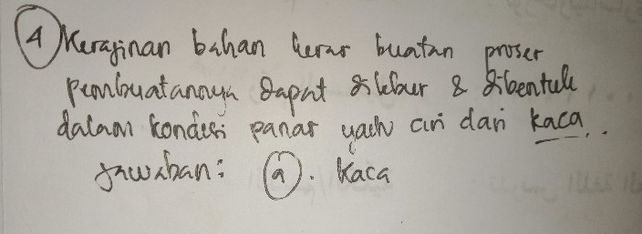 4 Kerajinan bahan keras buatan proses
pembuatannya dapat dilebur & dibentuk
dalam kondisi panas yach ciri dari kaca..
jawaban: a. Kaca